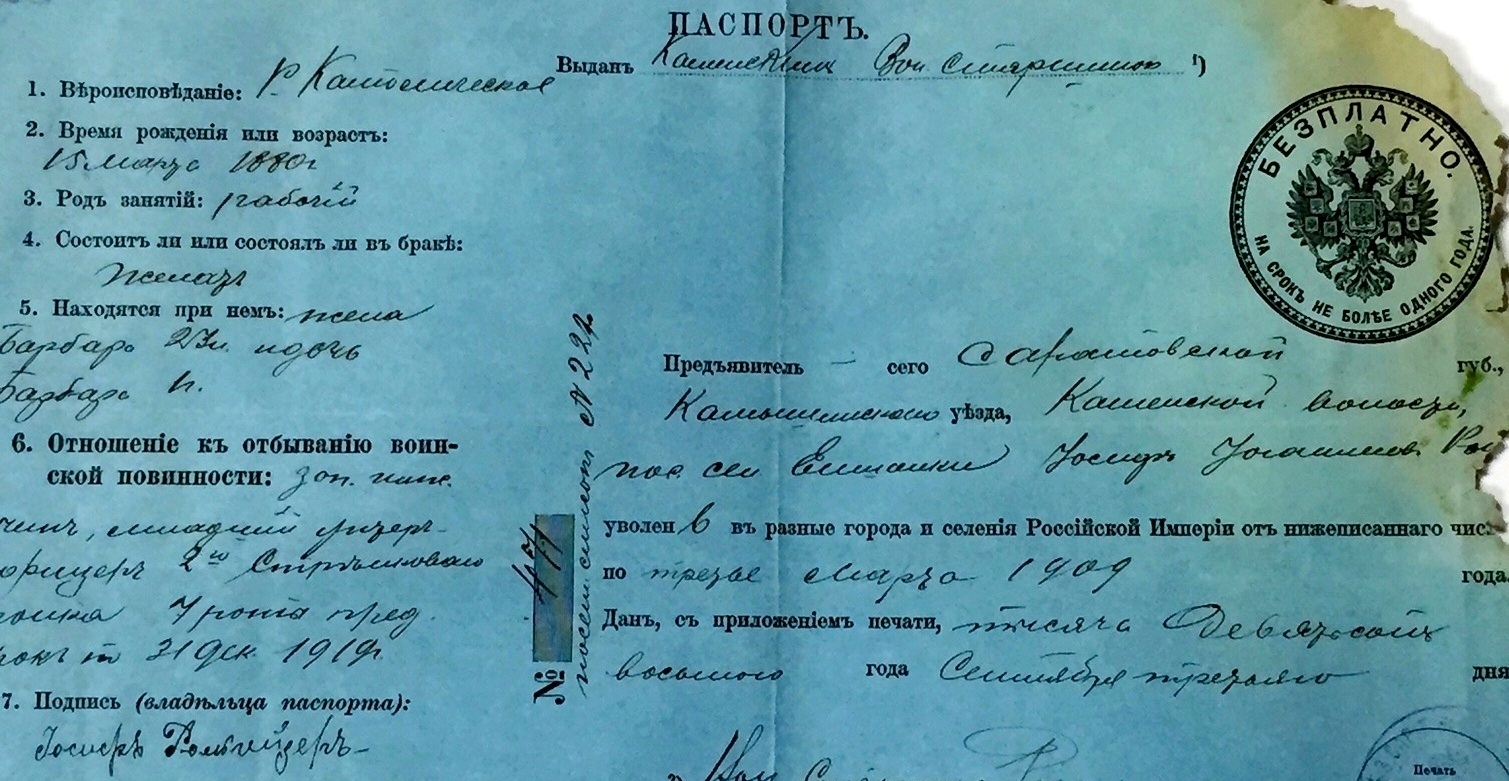 ПАСПОРТЪ.
Выданъ Каменскимъ Вол. Старшиною ¹)
1. Вѣроисповѣданіе: Р. Католическое
2. Время рожденія или возрастъ:
15 Марта 1880 г
3. Родъ занятій: рабочій
4. Состоитъ ли или состоялъ ли въ бракѣ:
женатъ
5. Находятся при немъ: жена
Барбара 23 л. и дочь
Барбара
6. Отношеніе къ отбыванію воин-
ской повинности: зап. ниж.
чинъ, младшій унтеръ-
офицеръ 2го Стрѣлковаго
полка 7 роты пред.
срокъ по 31 Дек. 1919 г.
7. Подпись (владѣльца паспорта):
Іосифъ
БЕЗПЛАТНО.
НА СРОКЪ НЕ БОЛѢЕ ОДНОГО ГОДА.
№ 477
посем. списокъ № 222.
Предъявитель сего Саратовской губ.,
Камышинскаго уѣзда, Каменской волости,
пос. сел. Іосифъ
уволенъ въ разные города и селенія Россійской Имперіи отъ нижеписаннаго чис
по третье Марта 1909 года.
Данъ, съ приложеніемъ печати, тысяча Девятьсотъ
восьмого года Сентября третьяго дня
Печать